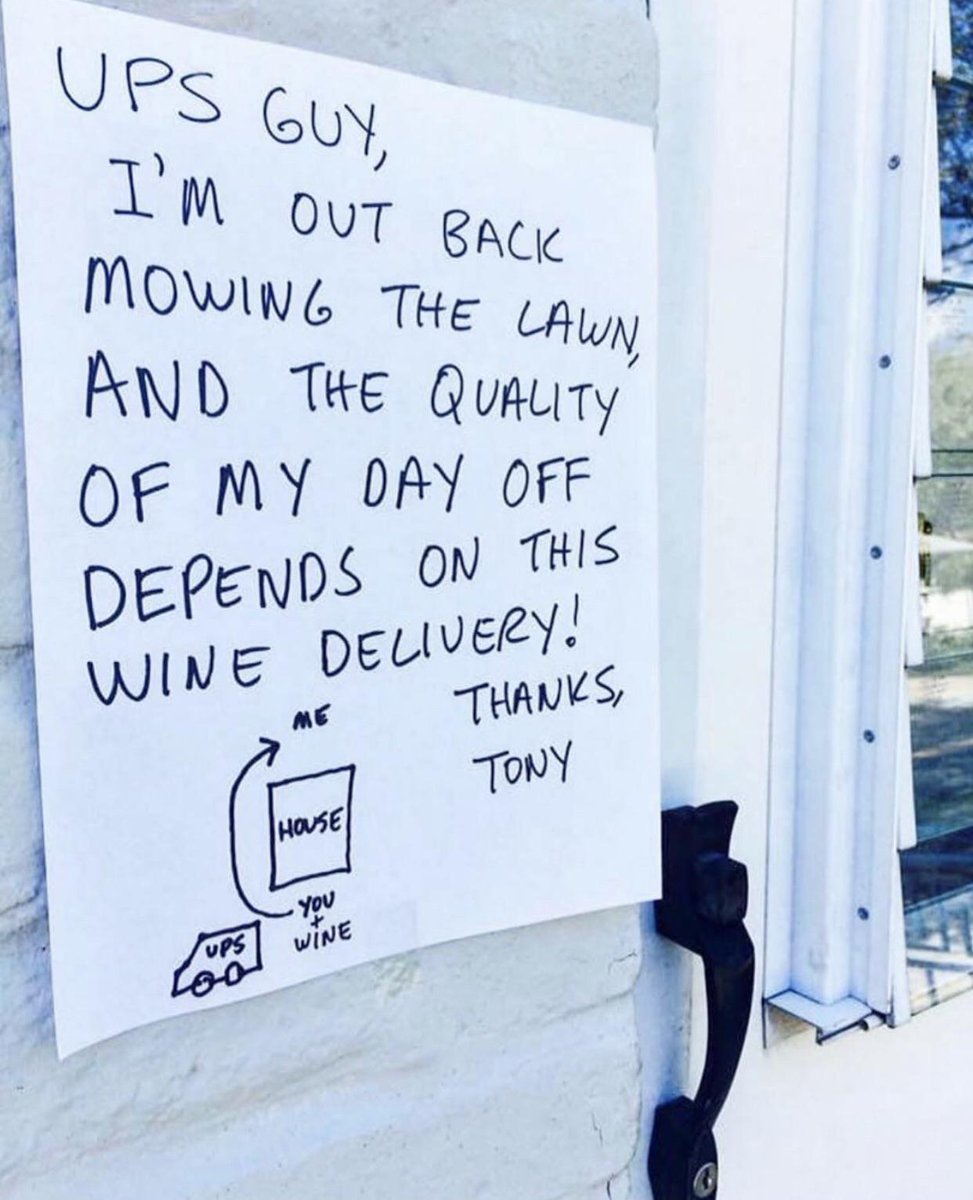 UPS GUY,
I'M OUT BACK
MOWING THE LAWN,
AND THE QUALITY
OF MY DAY OFF
DEPENDS ON THIS
WINE DELIVERY!
THANKS,
TONY
ME
HOUSE
YOU
+
WINE
UPS